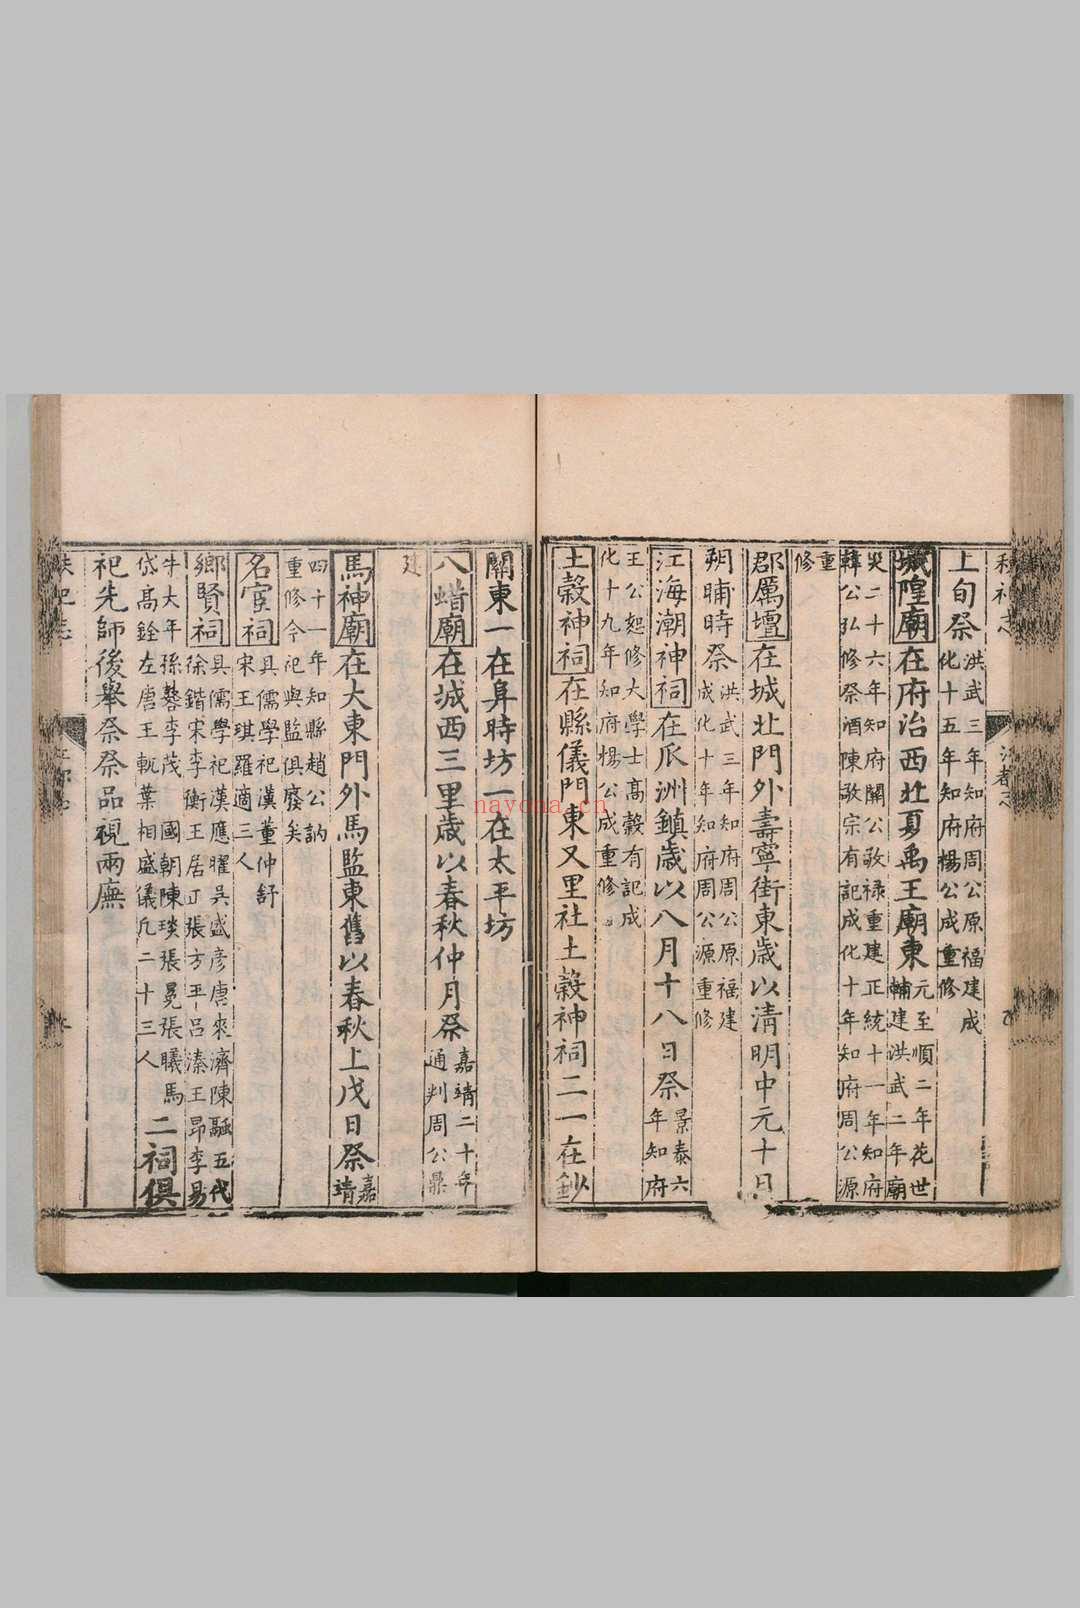 上旬祭洪武三年知府周公原福建成
化十五年知府楊公成重修
城隍廟在府治西北夏禹王廟東元至順二年花世
輔建洪武二年廟
災二十六年知府關公敬祿重建正統十一年知府
韓公弘修祭酒陳敬宗有記成化十年知府周公源
重
修
郡厲壇在城北門外壽寧街東歲以清明中元十日
朔晡時祭洪武三年知府周公原福建
成化十年知府周公源重修
江海潮神祠在瓜洲鎮歲以八月十八日祭景泰六
年知府
王公恕修大學士高穀有記成
化十九年知府楊公成重修
土穀神祠在縣儀門東又里社土穀神祠二一在鈔
關東一在身時坊一在太平坊
八蜡廟在城西三里歲以春秋仲月祭嘉靖二十年
通判周公鼎
建
馬神廟在大東門外馬監東舊以春秋上戊日祭嘉
靖
四十一年知縣趙公訥
重修今祀與監俱廢矣
名宦祠具儒學祀漢董仲舒
宋王琪羅適三人
鄉賢祠具儒學祀漢應曜吳盛彥唐來濟陳融五代
徐鍇宋李衡王居正張方平呂溱王昂李易
牛大年孫蓉李茂國朝陳琰張晃張曦馬
岱高銓左唐王軏葉相盛儀凡二十三人
二祠俱
祀先師後舉祭祭品視兩廡
秩祀志
nayona.cn